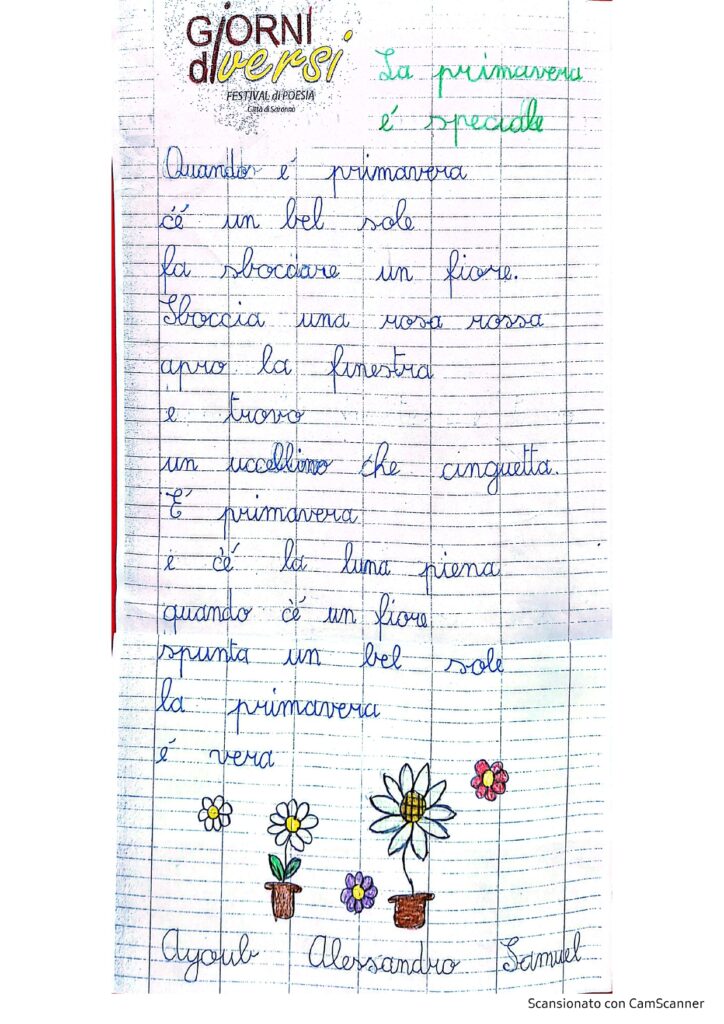 GiORNI
diversi
FESTIVAL di POESIA
Città di Saronno
La primavera
é speciale
Quando é primavera
c'é un bel sole
fa sbocciare un fiore.
Sboccia una rosa rossa
apro la finestra
e trovo
un uccellino che cinguetta.
É primavera
e c'é la luna piena
quando c'é un fiore
spunta un bel sole
la primavera
é vera
Ayoub Alessandro Samuel
Scansionato con CamScanner